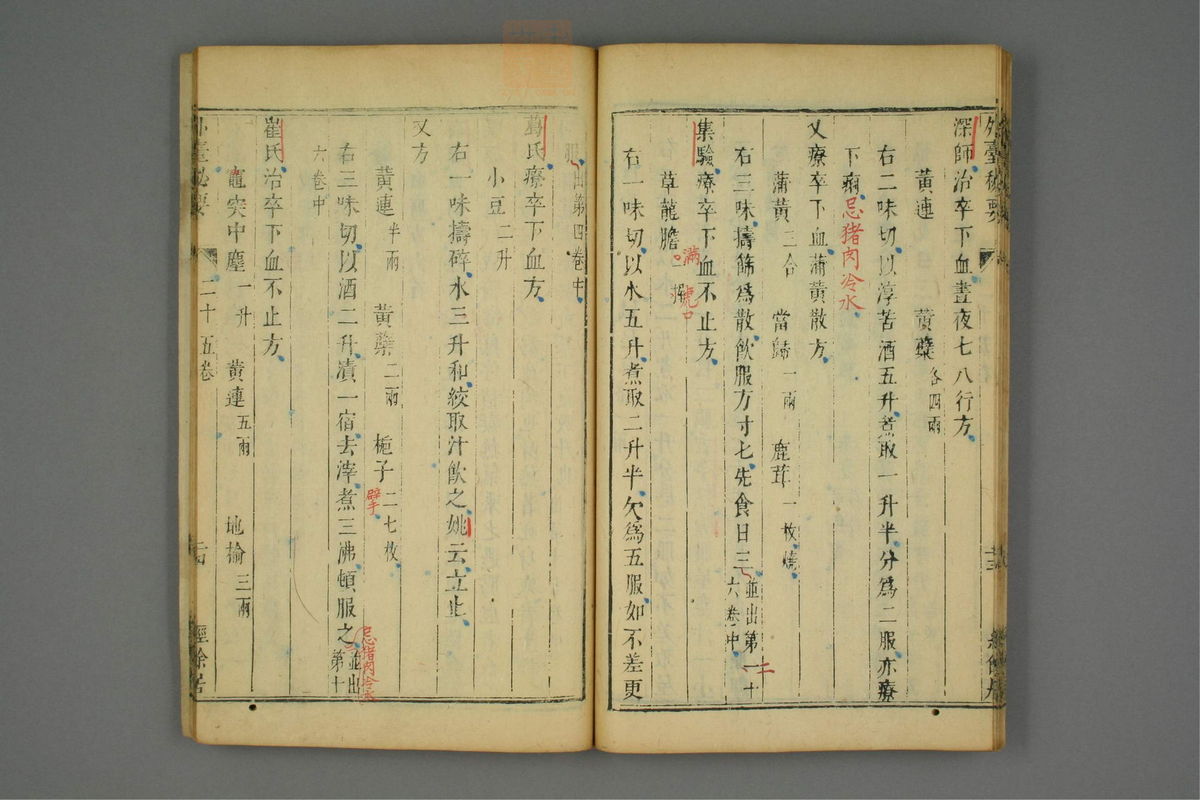 外臺秘要
深師治卒下血晝夜七八行方
黃連 黃蘗各四兩
右二味切以淳苦酒五升煮取一升半分爲二服亦療
下痢忌猪肉冷水
又療卒下血蒲黃散方
蒲黃三合 當歸一兩 鹿茸一枚燒
右三味擣篩爲散飲服方寸匕先食日三並出第一十
六卷中
二
集驗療卒下血不止方
草龍膽一握
滿虎口
右一味切以水五升煮取二升半欠爲五服如不差更
服出第四卷中
葛氏療卒下血方
小豆二升
右一味擣碎水三升和絞取汁飲之姚云立止
又方
黃連半兩 黃蘗二兩 梔子二七枚
擘
右三味切以酒二升漬一宿去滓煮三沸頓服之並出
第十
忌猪肉冷水
六卷中
崔氏治卒下血不止方
竈突中塵一升 黃連五兩 地榆三兩
外臺秘要 二十五卷 經餘居